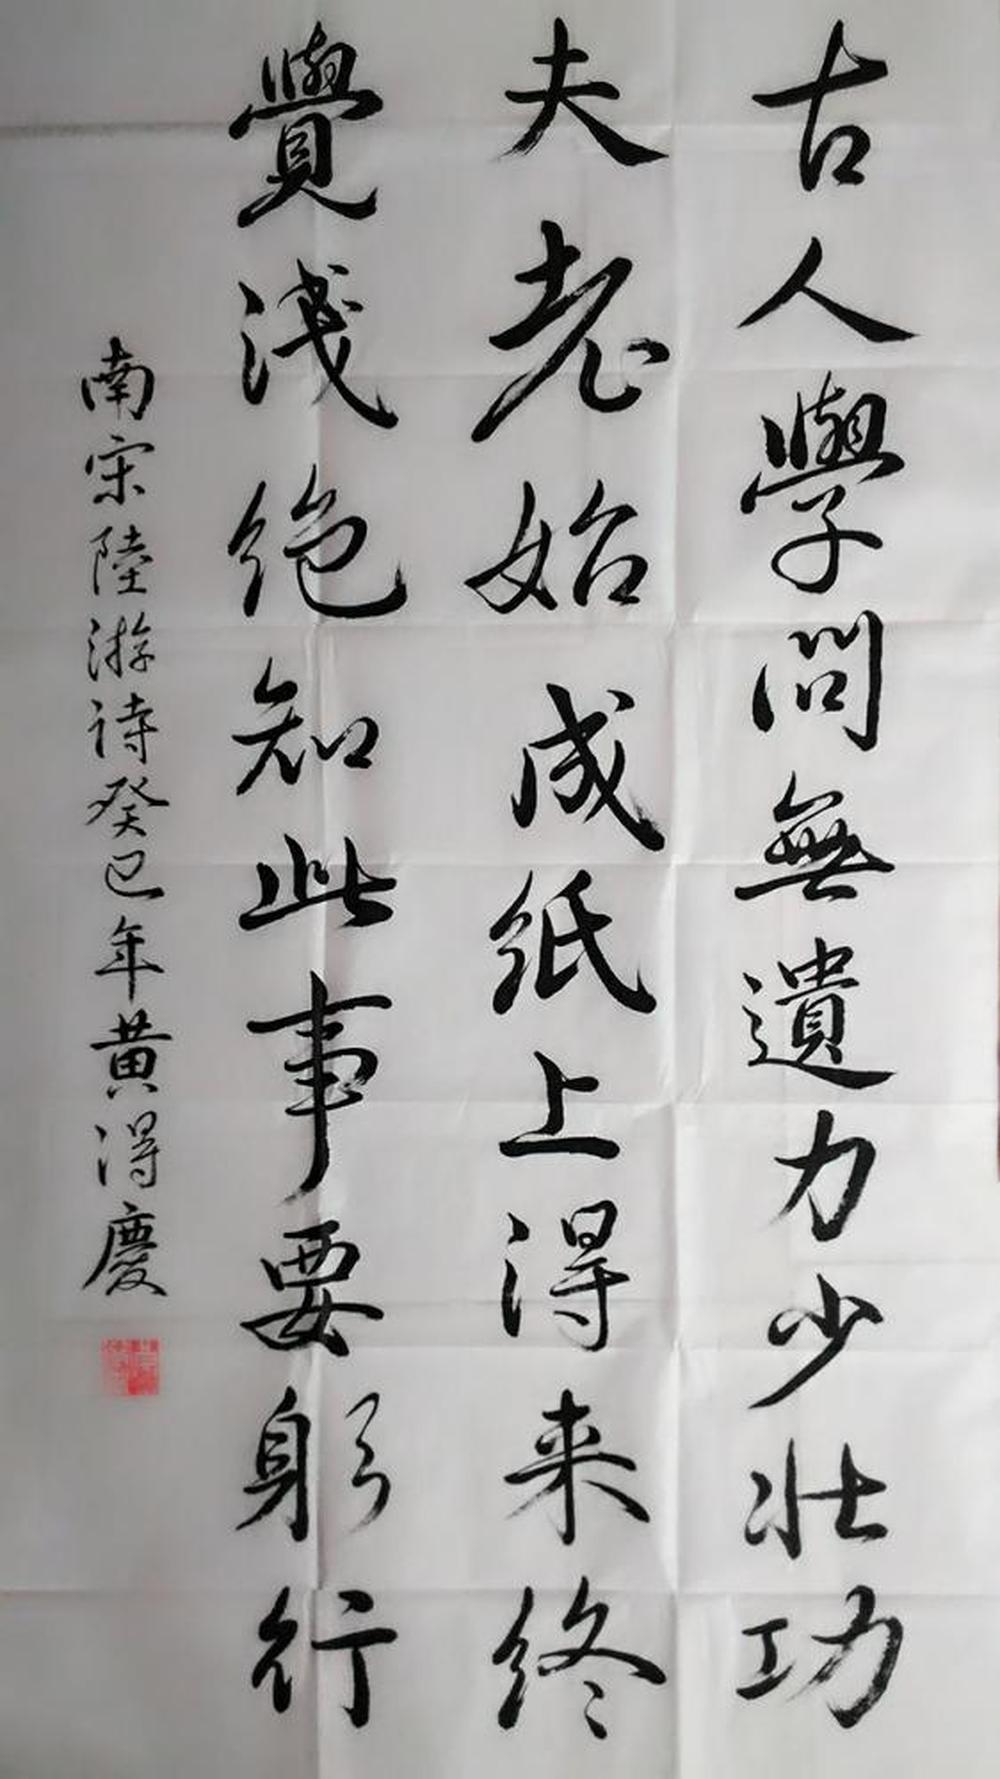 古人學問無遺力少壯功
夫老始成紙上得来终
覺淺绝知此事要躬行
南宋陸游诗癸巳年黄得慶